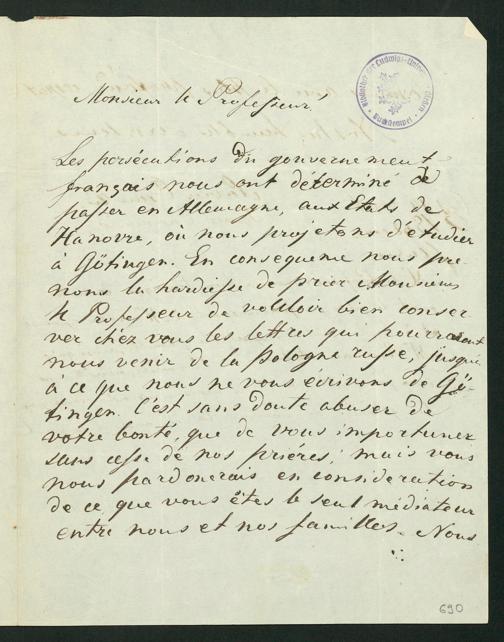 Monsieur le Professeur!
Les persécutions du gouvernement
français nous ont déterminé de
passer en Allemagne, aux Etats de
Hanovre, où nous projetons d'étudier
à Götingen. En consequence nous pre-
nons la hardiesse de prier Monsieur
le Professeur de vouloir bien conser
ver chez vous les lettres qui pourraient
nous venir de la Pologne russe, jusqu'
à ce que nous ne vous ecrivons de Gö-
tingen. C'est sans doute abuser de
votre bonté, que de vous importuner
sans cesse de nos prières; mais vous
nous pardonerais en consideration
de ce que vous êtes le seul médiateur
entre nous et nos familles. Nous
690